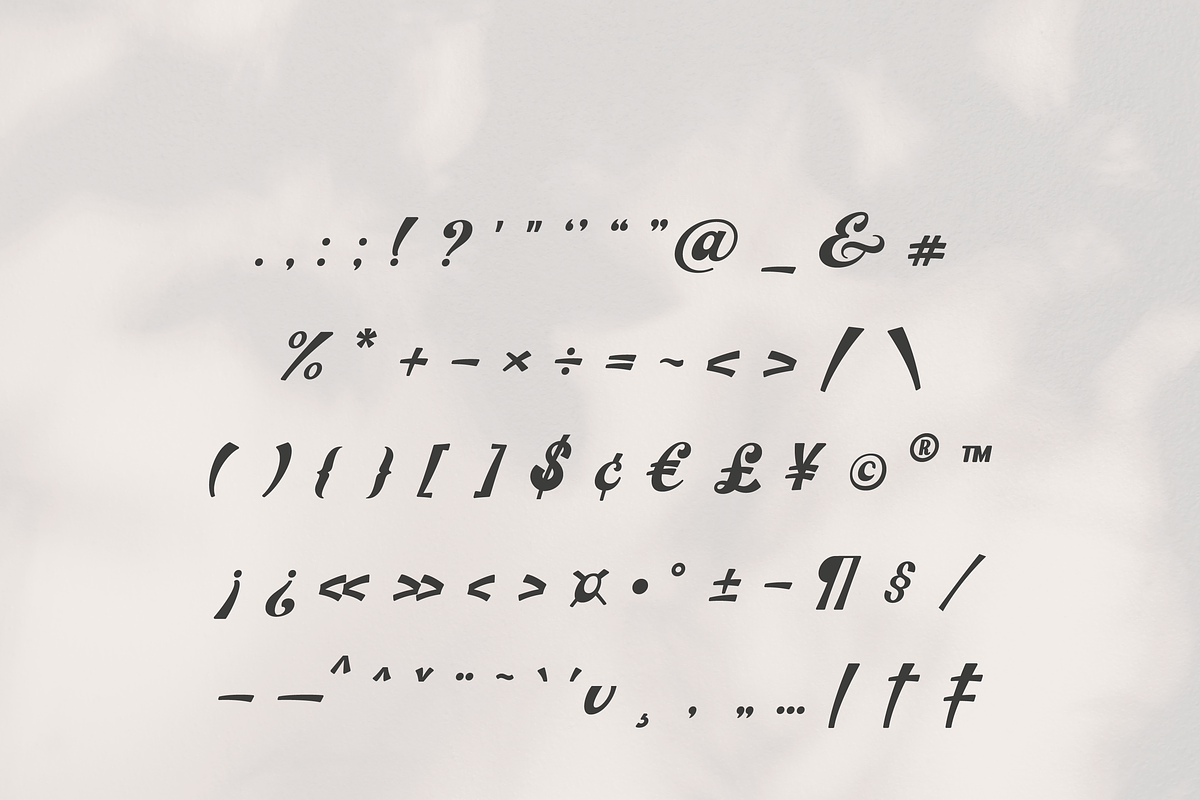 . , : ; ! ? ' " ‘ ’ “ ” @ _ & #
% * + − × ÷ = ~ < > / \
( ) { } [ ] $ ¢ € £ ¥ © ® ™
¡ ¿ « » ‹ › ¤ • ° ± − ¶ § ⁄
– — ^ ˆ ˇ ¨ ˜ ` ´ υ ¸ ‚ „ … | † ‡